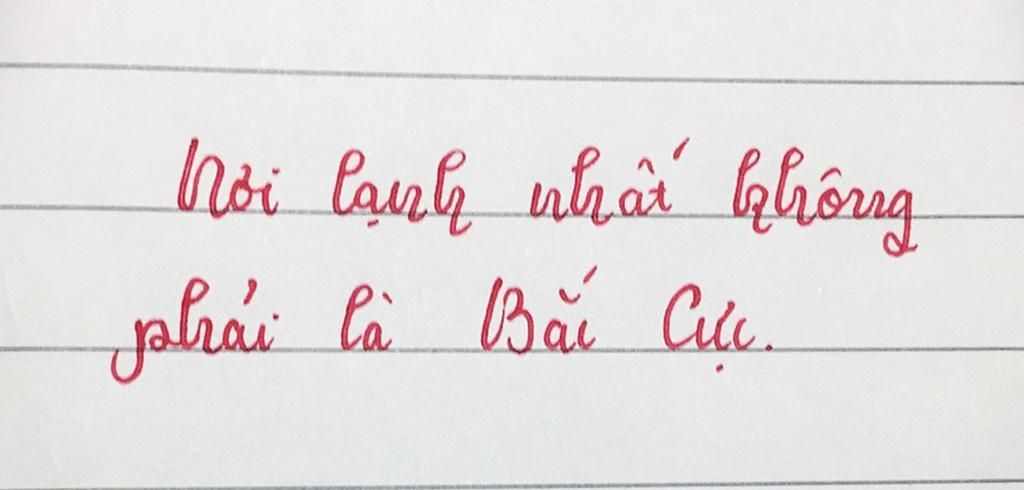 Nơi lạnh nhất không
phải là Bắc Cực.